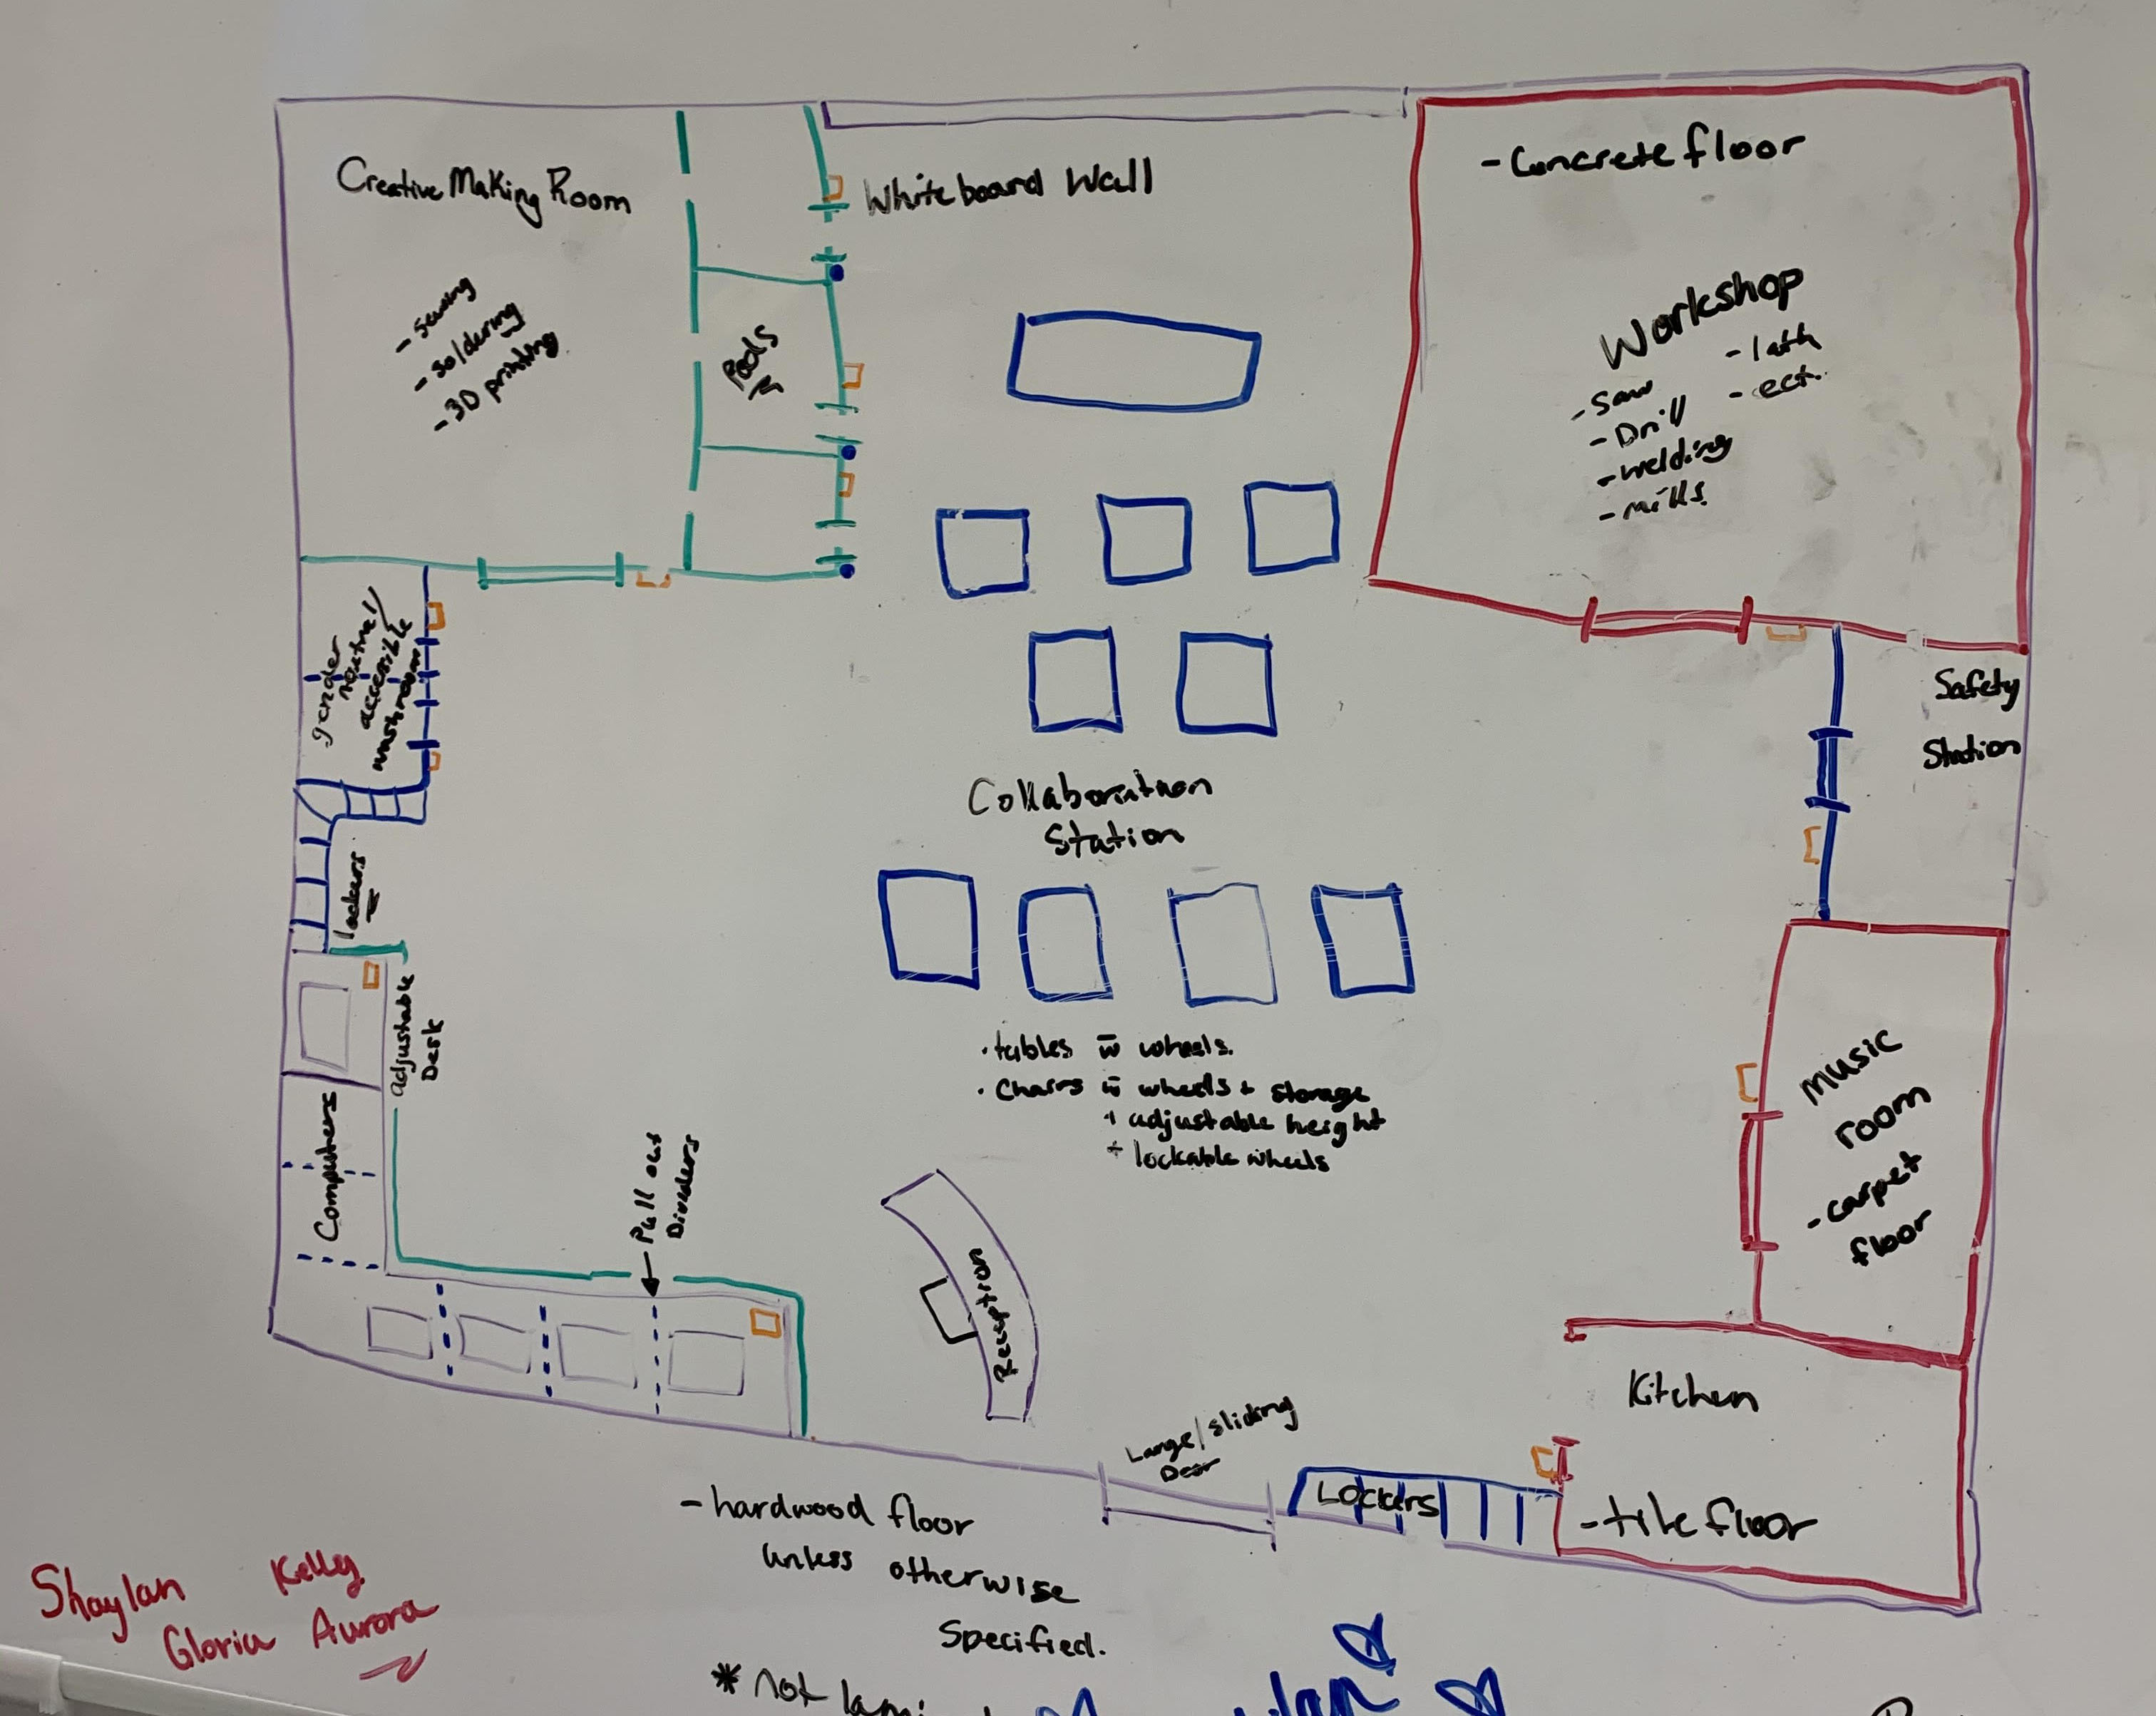 Creative Making Room
- sewing
- soldering
- 3D printing
Pods
Whiteboard Wall
- Concrete floor
Workshop
- saw
- Drill
- welding
- mills
- lath
- ect.
Safety
Station
gender
neutral/
accessible
washroom
lockers
adjustable
Desk
Computers
Pull out
Dividers
Collaboration
Station
· tables w̅ wheels.
· Chairs w̅ wheels + storage
+ adjustable height
+ lockable wheels
Reception
music
room
- carpet
floor
Kitchen
- tile floor
Large/sliding
Door
Lockers
- hardwood floor
unless otherwise
Specified.
* not
Shaylan Kelly
Gloria Aurora